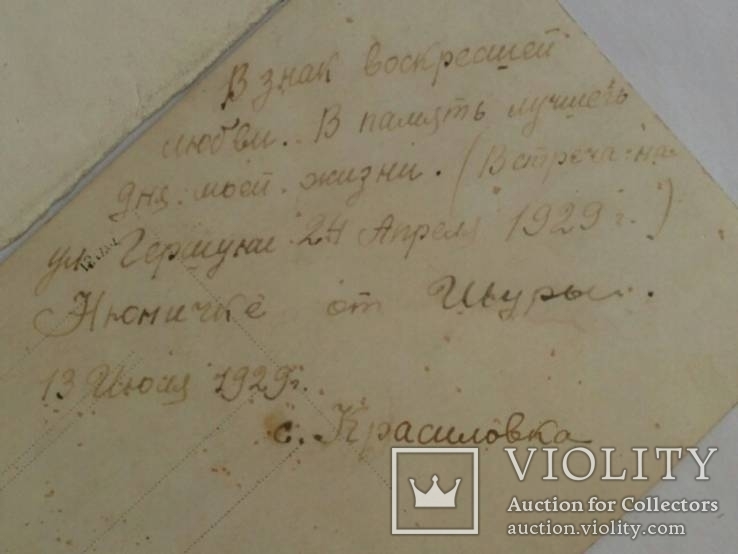 В знак воскресшей
любви. В память лучшего
дня моей жизни. (Встреча на
ул. 24 Апреля 1929 г.)
Нюничке от Шуры.
13 1929 г.
с. Красиловка
VIOLITY
Auction for Collectors
auction.violity.com